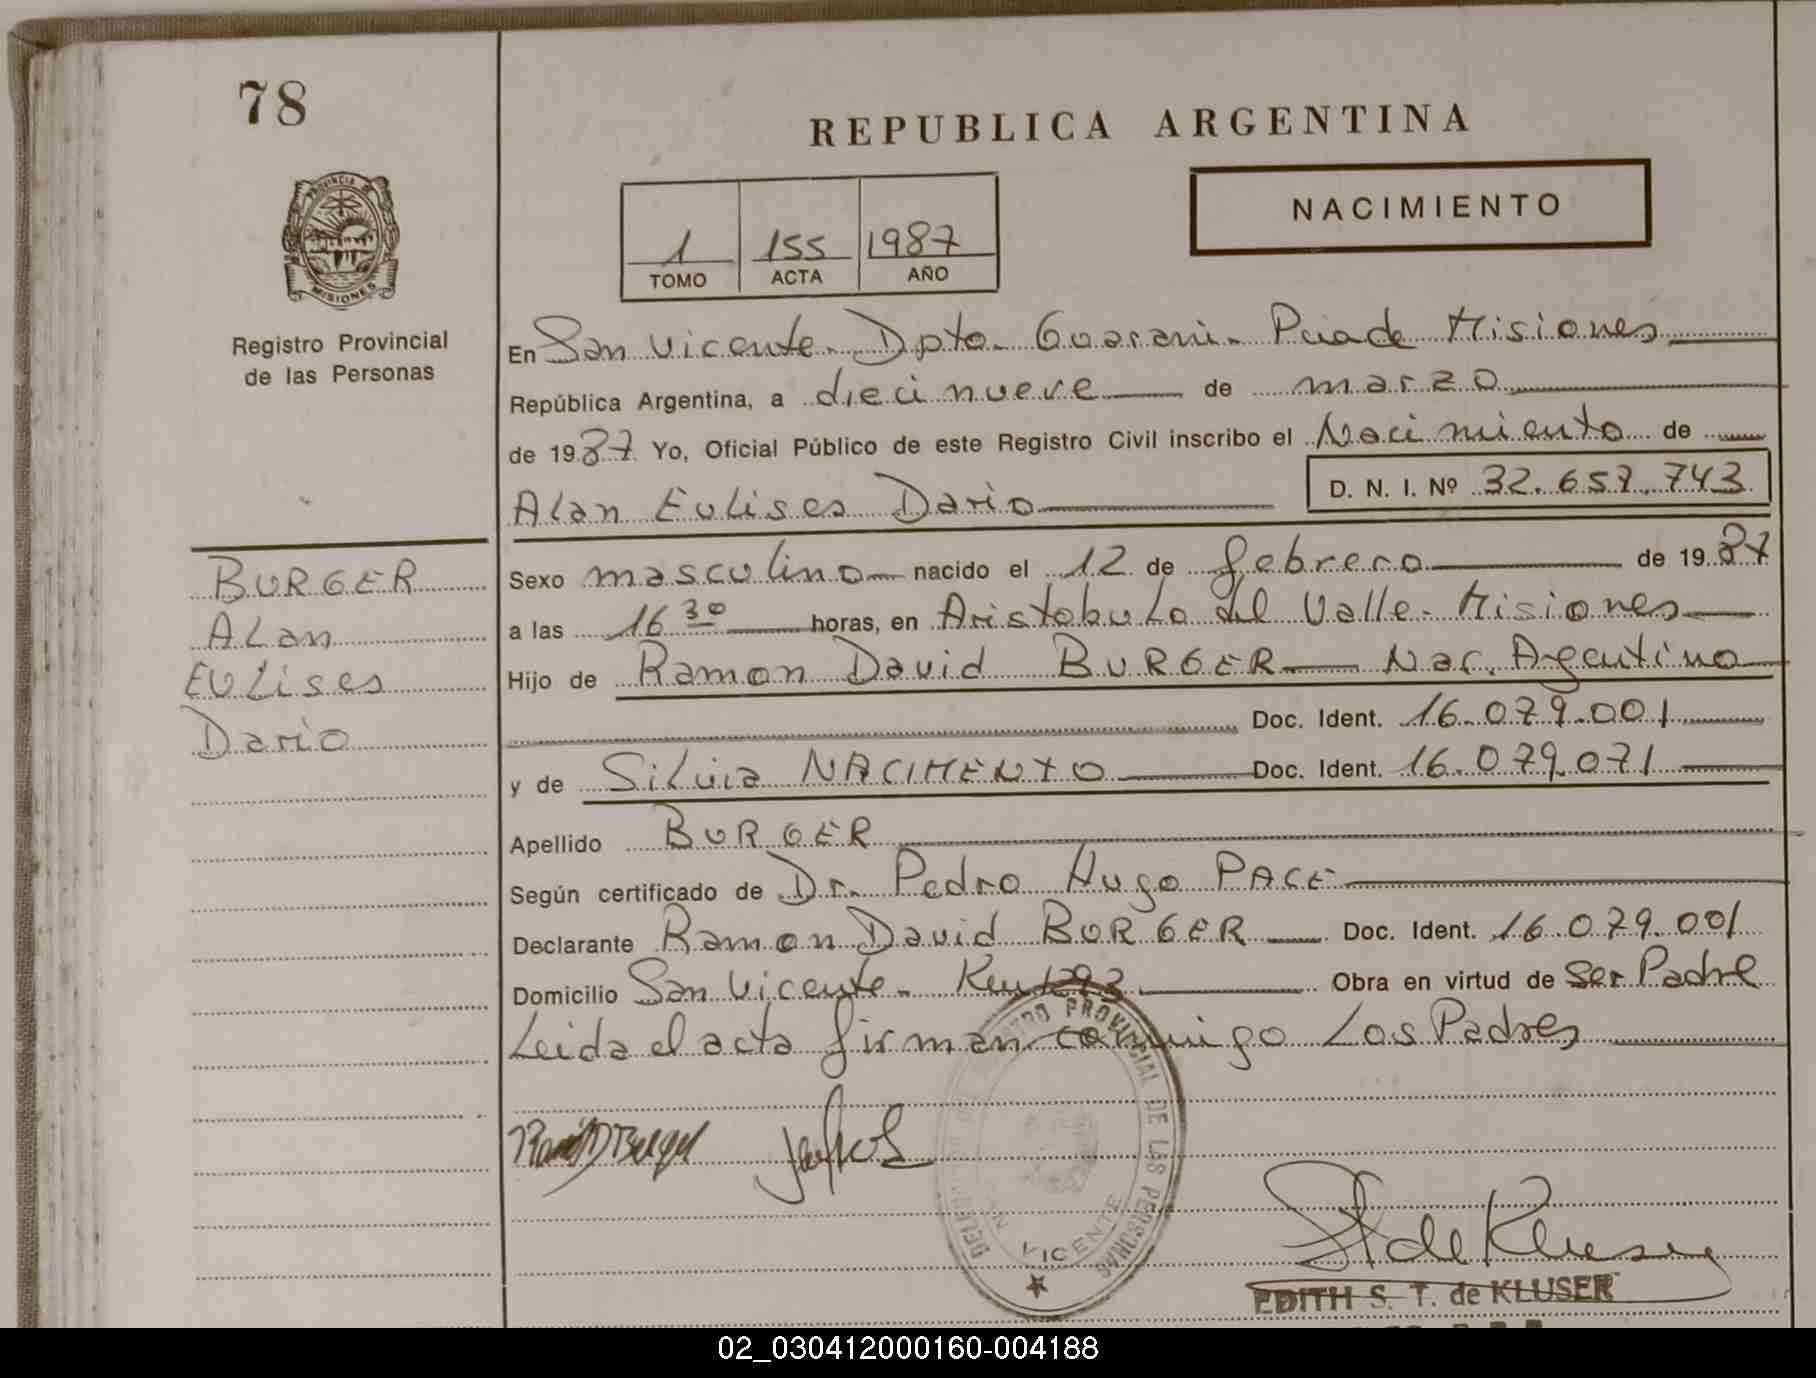 78
REPUBLICA ARGENTINA
PROVINCIA DE
MISIONES
Registro Provincial
de las Personas
1 155 1987
TOMO ACTA AÑO
NACIMIENTO
En San Vicente. Dpto. Guarani. Pcia de Misiones
República Argentina, a diecinueve de marzo
de 1987 Yo, Oficial Público de este Registro Civil inscribo el Nacimiento de
Alan Eulises Dario D. N. I. Nº 32.657.743
BURGER
Alan
Eulises
Dario
Sexo masculino nacido el 12 de febrero de 1987
a las 16 30 horas, en Aristobulo del Valle. Misiones
Hijo de Ramon David BURGER Nac. Argentino
Doc. Ident. 16.079.001
y de Silvia NACIMENTO Doc. Ident. 16.079.071
Apellido BURGER
Según certificado de Dr. Pedro Hugo PACE
Declarante Ramon David BURGER Doc. Ident. 16.079.001
Domicilio San Vicente. Km 1293 Obra en virtud de Ser Padre
Leida el acta firman conmigo Los Padres
PROVINCIAL DE LAS PERSONAS
VICENTE
EDITH S. T. de KLUSER
02_030412000160-004188